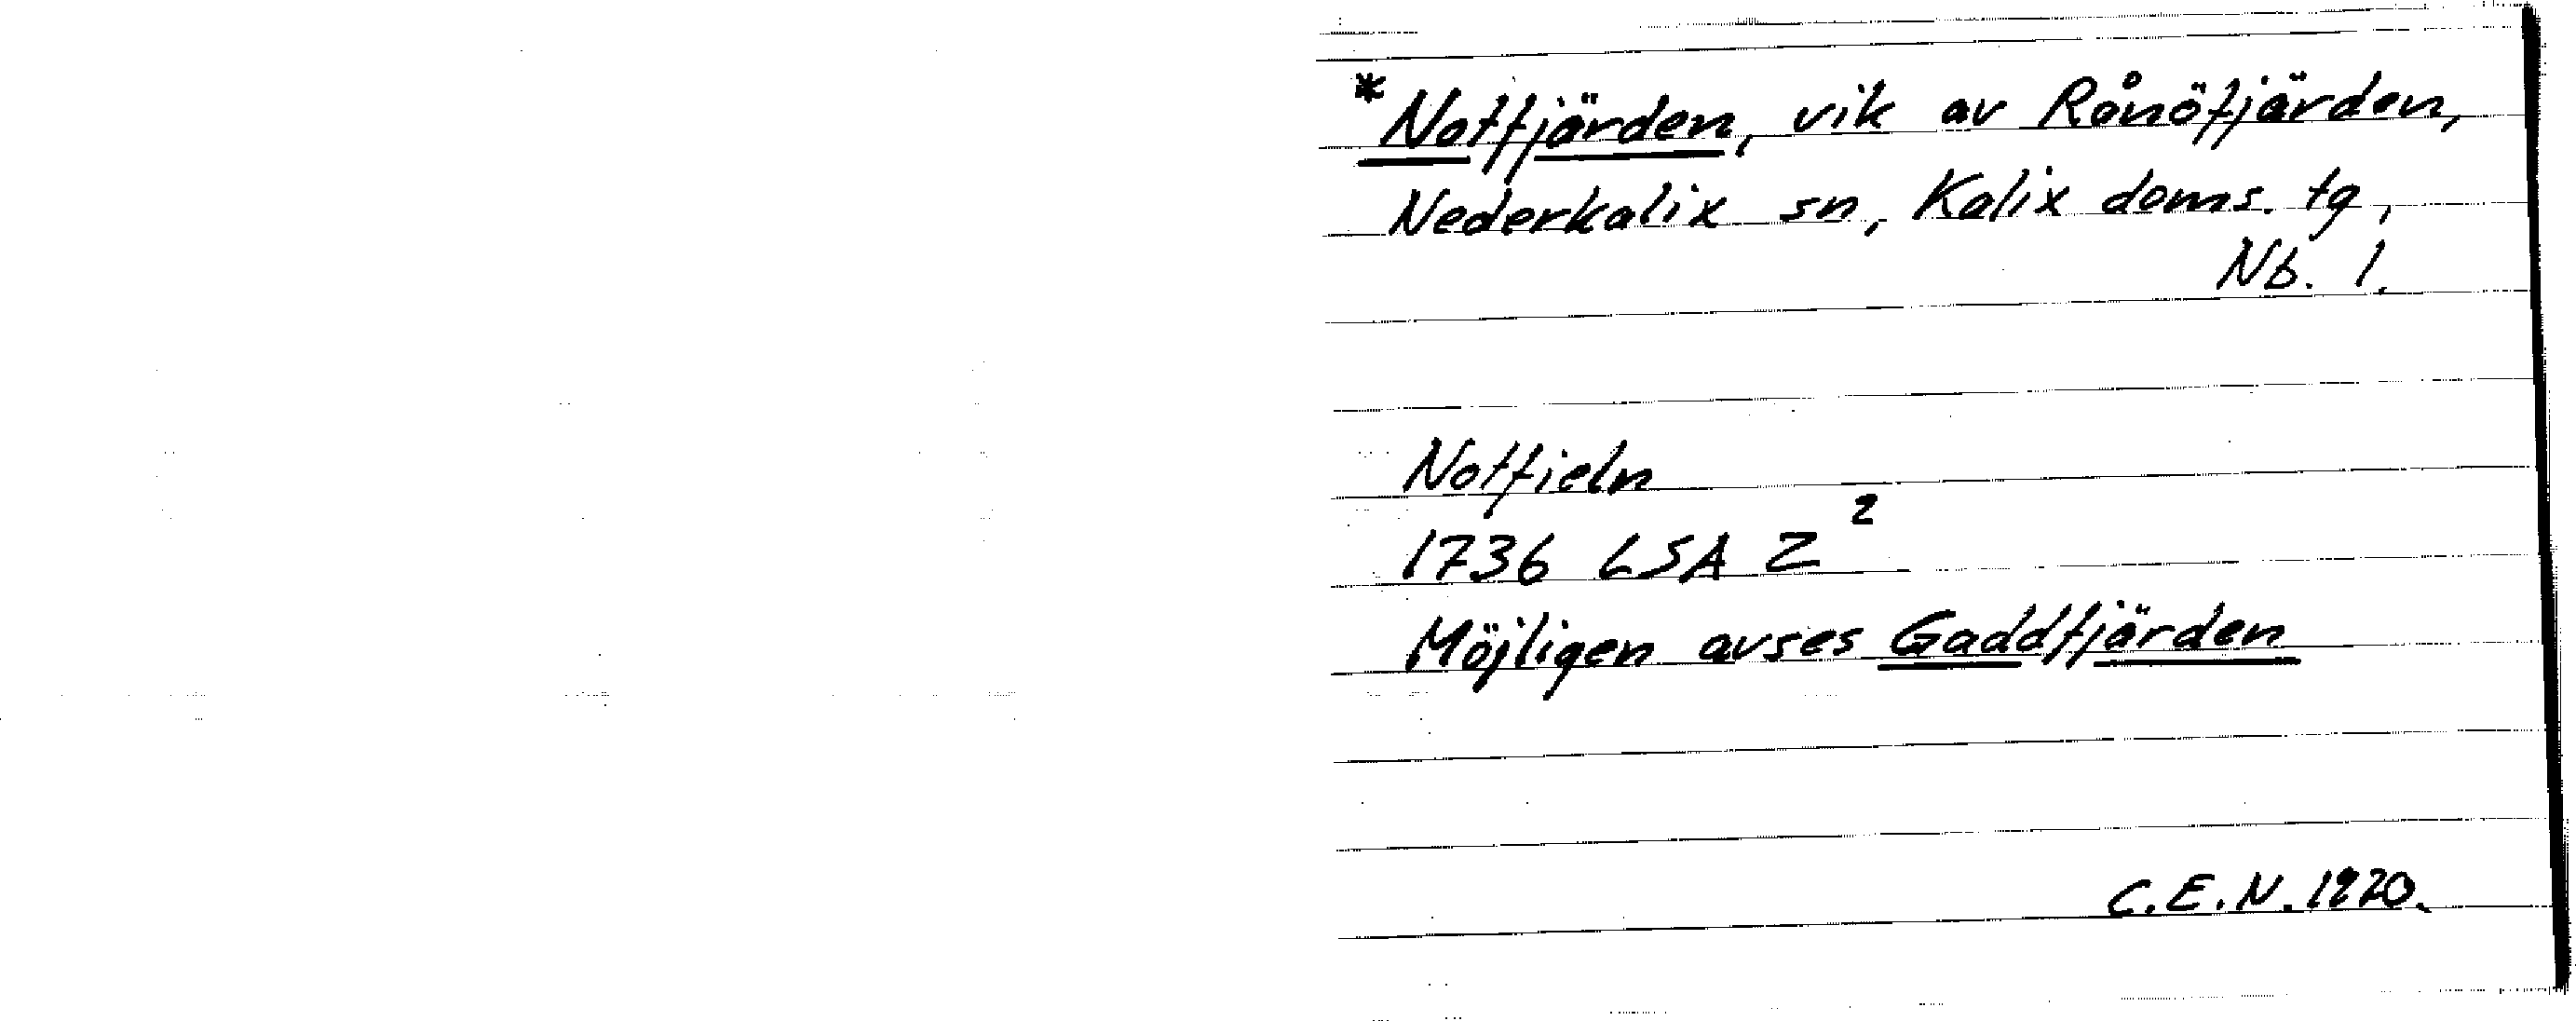 *Notfjärden, vik av Rånöfjärden,
Nederkalix sn, Kalix doms. tg,
Nb. l.
Notfieln
1736 LSA Z²
Möjligen avses Gaddfjärden
C.E.N. 1970.